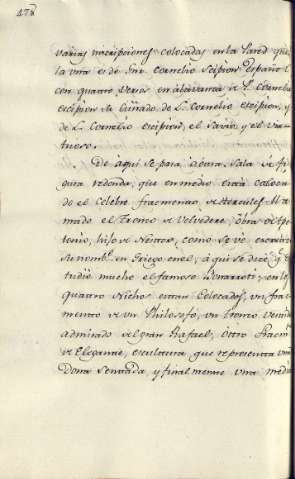 478
varias inscripciones colocadas en la Pared
la una es de Cornelio Scipion
con quatro Versos en alavanza de L. Cornelio
Scipion de L. Cornelio Scipion, y
de L. Cornelio Scipion, el Savio, y el Vir-
tuoso.
De aqui se pasa, a otra Sala de fi-
gura redonda, que en medio está coloca-
do el Celebre fracmento de Hercules lla-
mado el Tronco de Velvedere, obra de Apo-
lonio, hijo de Nestor, como se vé
su nomb. en Griego en el, aqui se dice, q
tudió mucho el famoso Bonarroti, en los
quatro Nichos estan Colocados, un frac-
mento de un Philosofo, un Tronco Vestido
admirado del gran Rafael, Otro fracm.
de Elegante, escultura, que representa una
Dona Sentada, y finalmente una